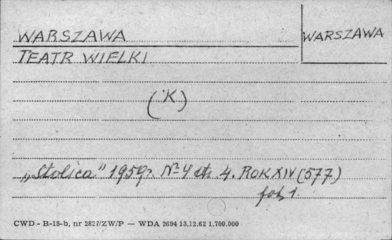 WARSZAWA
WARSZAWA
TEATR WIELKI
(K)
„Stolica" 1959r. Nº 4 str. 4. ROK XIV (577)
fot. 1
CWD - B-18-b, nr 2827/ZW/P — WDA 2694 13.12.62 1.700.000